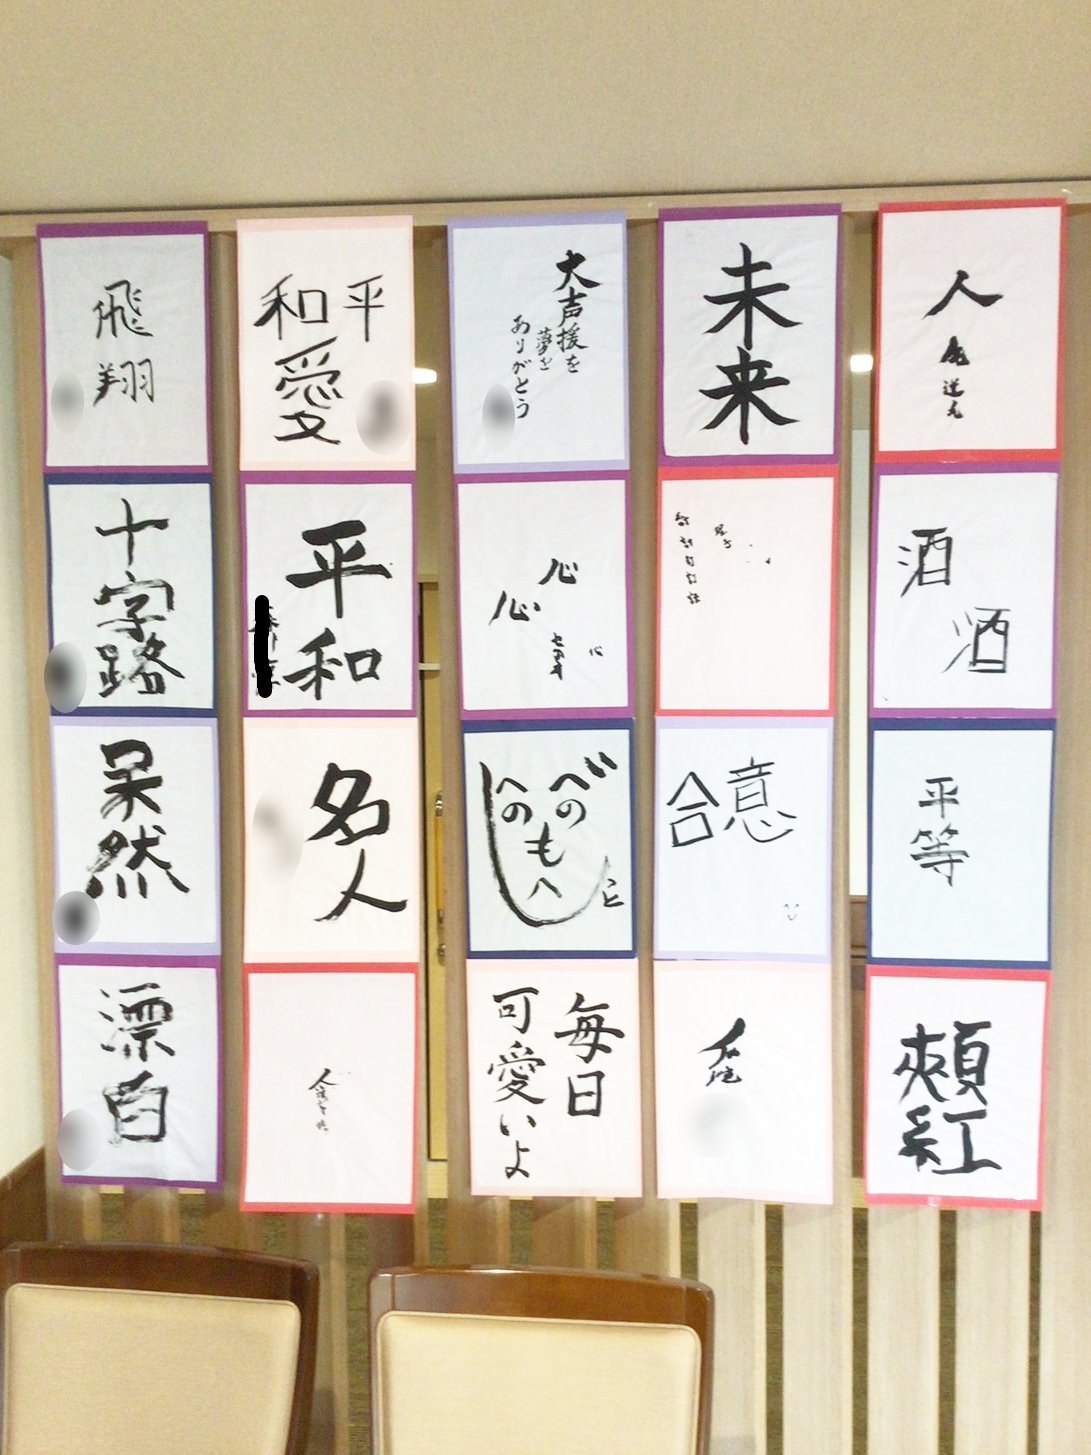 飛翔
平和
愛
大声援を
夢を
ありがとう
未来
人
十字路
平和
心
心
酒
酒
呆然
名人
へのへのもへじ
合意
平等
漂白
人
毎日
可愛いよ
頬紅